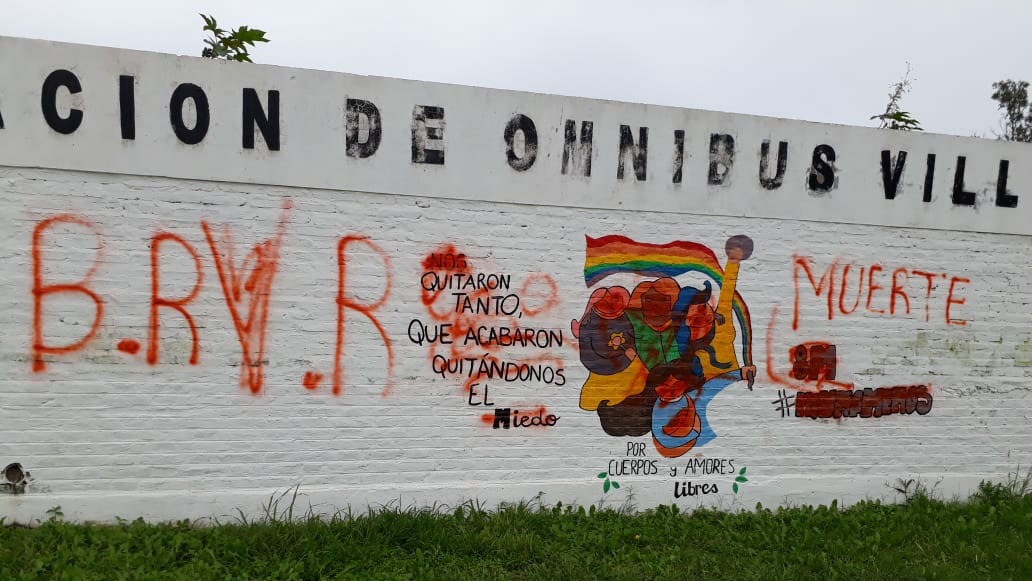 CION DE OMNIBUS VILL
B.RV.R
NOS
QUITARON
TANTO,
QUE ACABARON
QUITÁNDONOS
EL
Miedo
POR
CUERPOS y AMORES
libres
MUERTE
8M